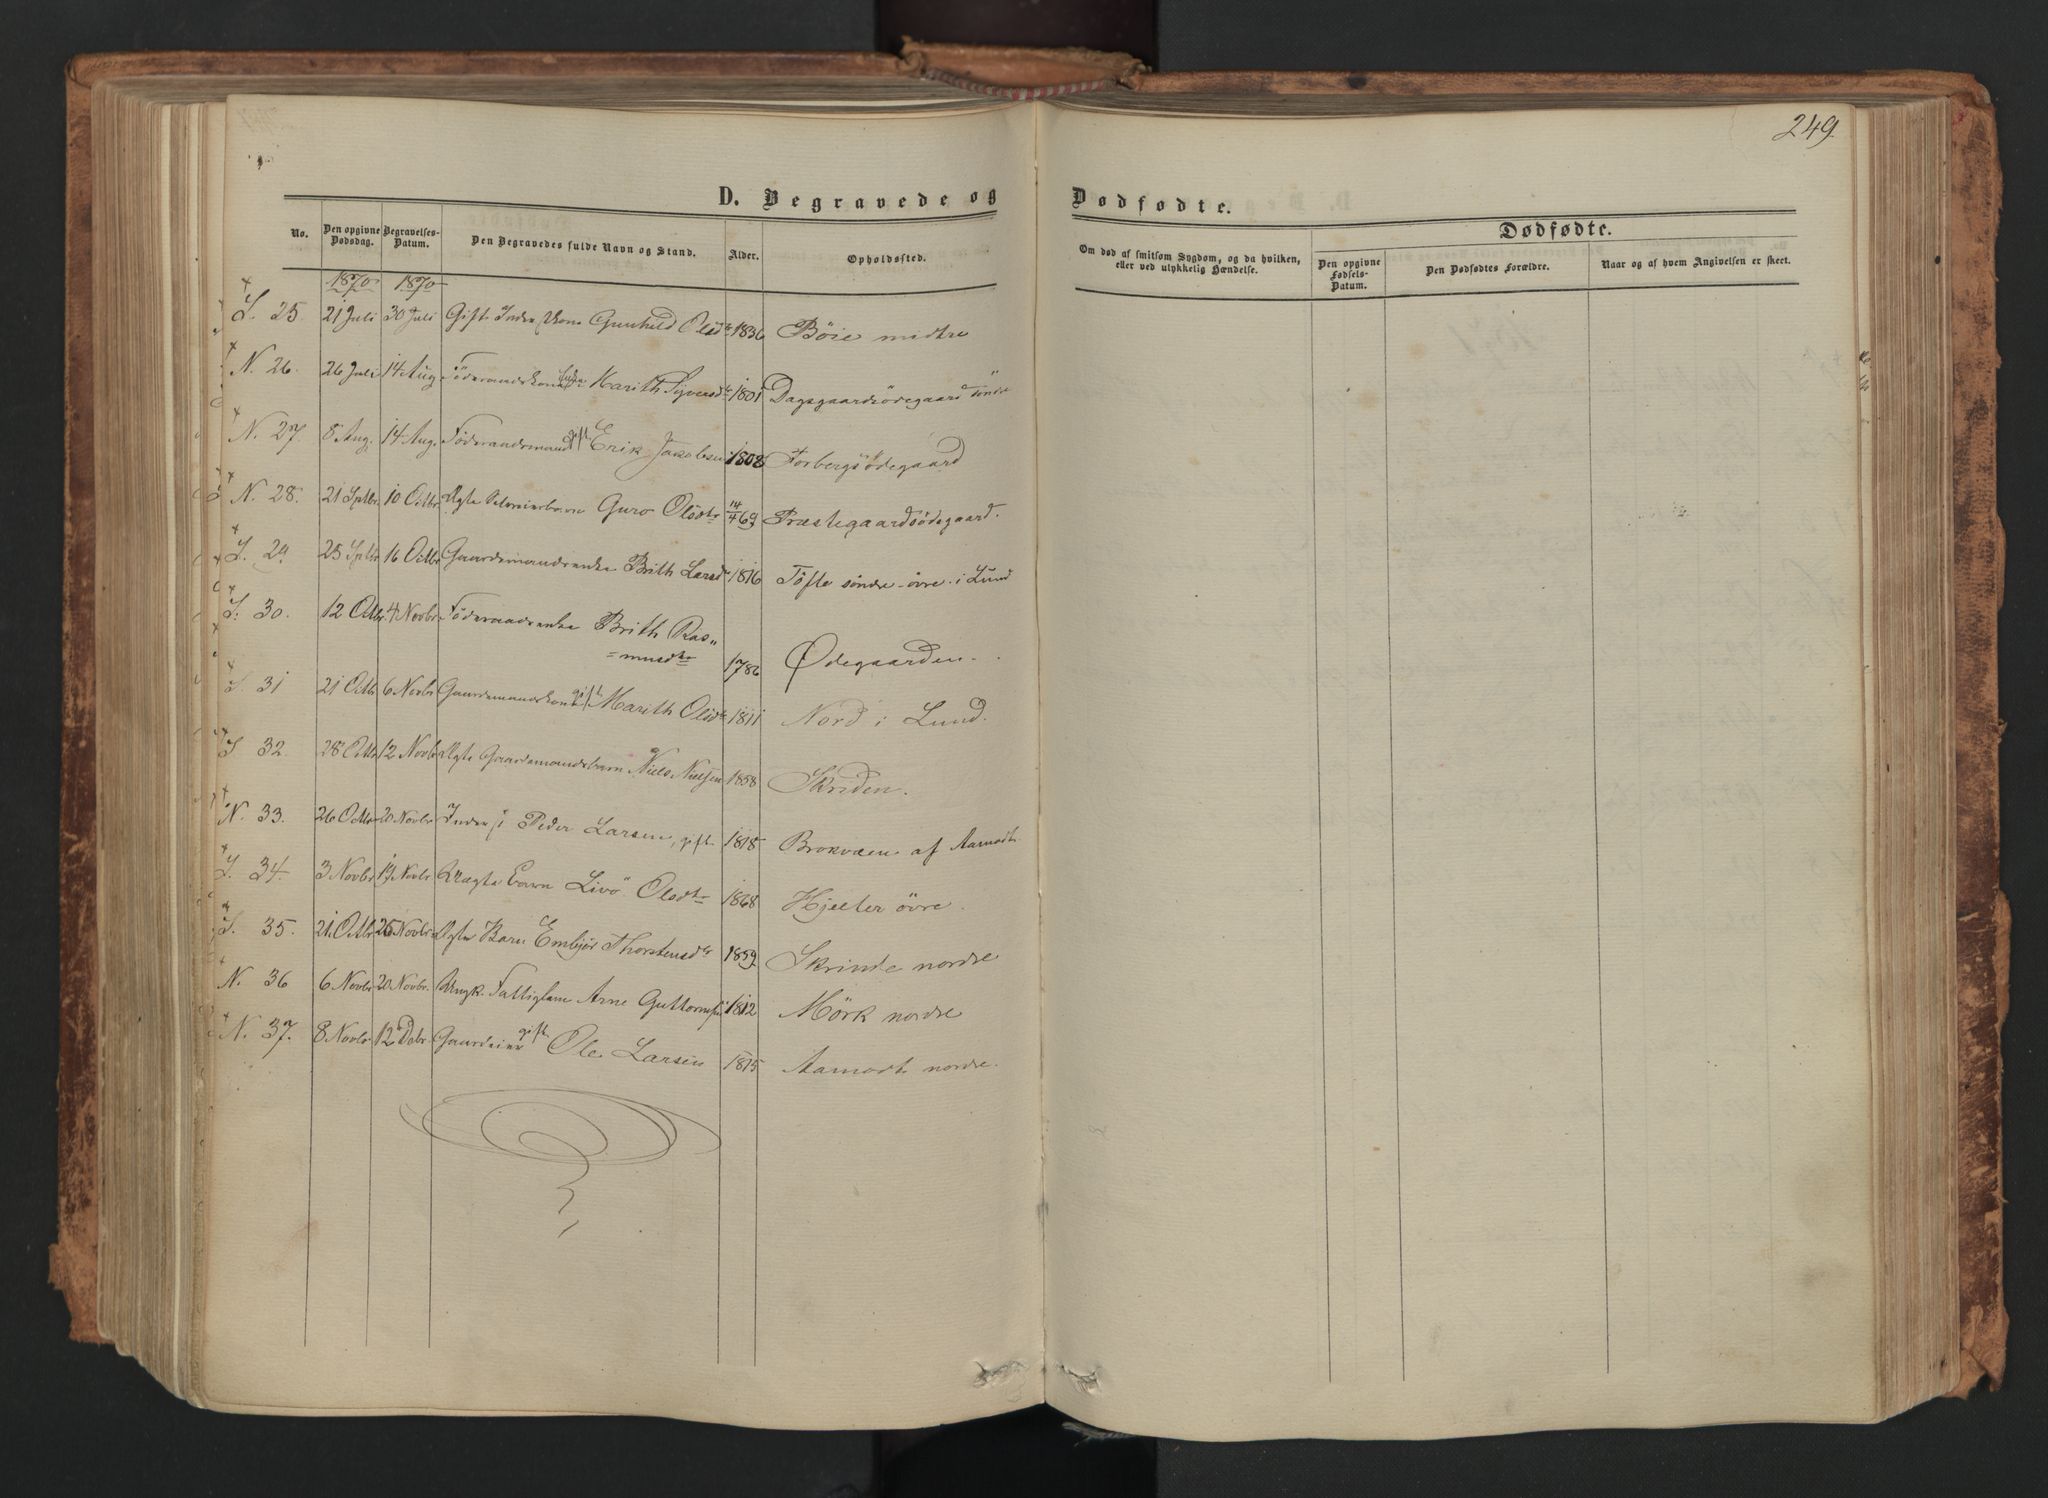 249
D. Begravede og Dødfødte.
No. Den opgivne Dødsdag. Begravelses-Datum. Den Begravedes fulde Navn og Stand. Alder. Opholdssted. Om død af smitsom Sygdom, og da hvilken, eller ved ulykkelig Hændelse. Dødfødte. Den opgivne Fødsels-Datum. Den Dødfødtes Forældre. Naar og af hvem Angivelsen er skeet.
1870 1870
S. 25 21 Juli 30 Juli Gift Inder Kone Gunhild Olsdtr 1836 Böie midtre
N. 26. 26 Juli 14 Aug Föderaadskone Marith Syversdtr 1801 Dagsgaardsödegaard söndre
N. 27. 8 Aug. 14 Aug. Föderaadsmand gift Erik Jakobsen 1808 Forbergsödegaard
N. 28. 21 Sptbr. 10 Octbr. Ægte Selveierbarn Guro Olsdtr 14/4 69 Præstegaardsödegaard.
S. 29 25 Sptbr 16 Octbr Gaardsmandsenke Brith Larsdtr 1816 Töfte söndre övre i Lund
S. 30. 12 Octbr. 4 Novbr. Föderaadsenke Brith Ras"
=musdtr 1786 Ødegaarden.
S. 31 21 Octbr 6 Novbr Gaardsmandskone gift Marith Olsdtr 1811 Nord i Lund.
S 32. 28 Octbr 12 Novbr Ægte Gaardsmandsbarn Niels Nielsen 1858 Skriden.
N. 33. 26 Octbr 20 Novbr Inder Peder Larsen, gift 1818 Brokvæen af Aamodt
S. 34. 3 Novbr 19 Novbr Uægte Barn Livö Olsdtr 1868 Hjelter övre.
S. 35. 21. Octbr 25 Novbr Ægte Barn Embjör Thorstensdtr 1859 Skrinde nordre
N. 36 6 Novbr 20 Novbr. Ungk. Fattiglem Arne Guttormsen 1812 Mörk nordre
N. 37. 8 Novbr 12 Debr Gaardeier gift Ole Larsen 1815 Aamodt nordre.